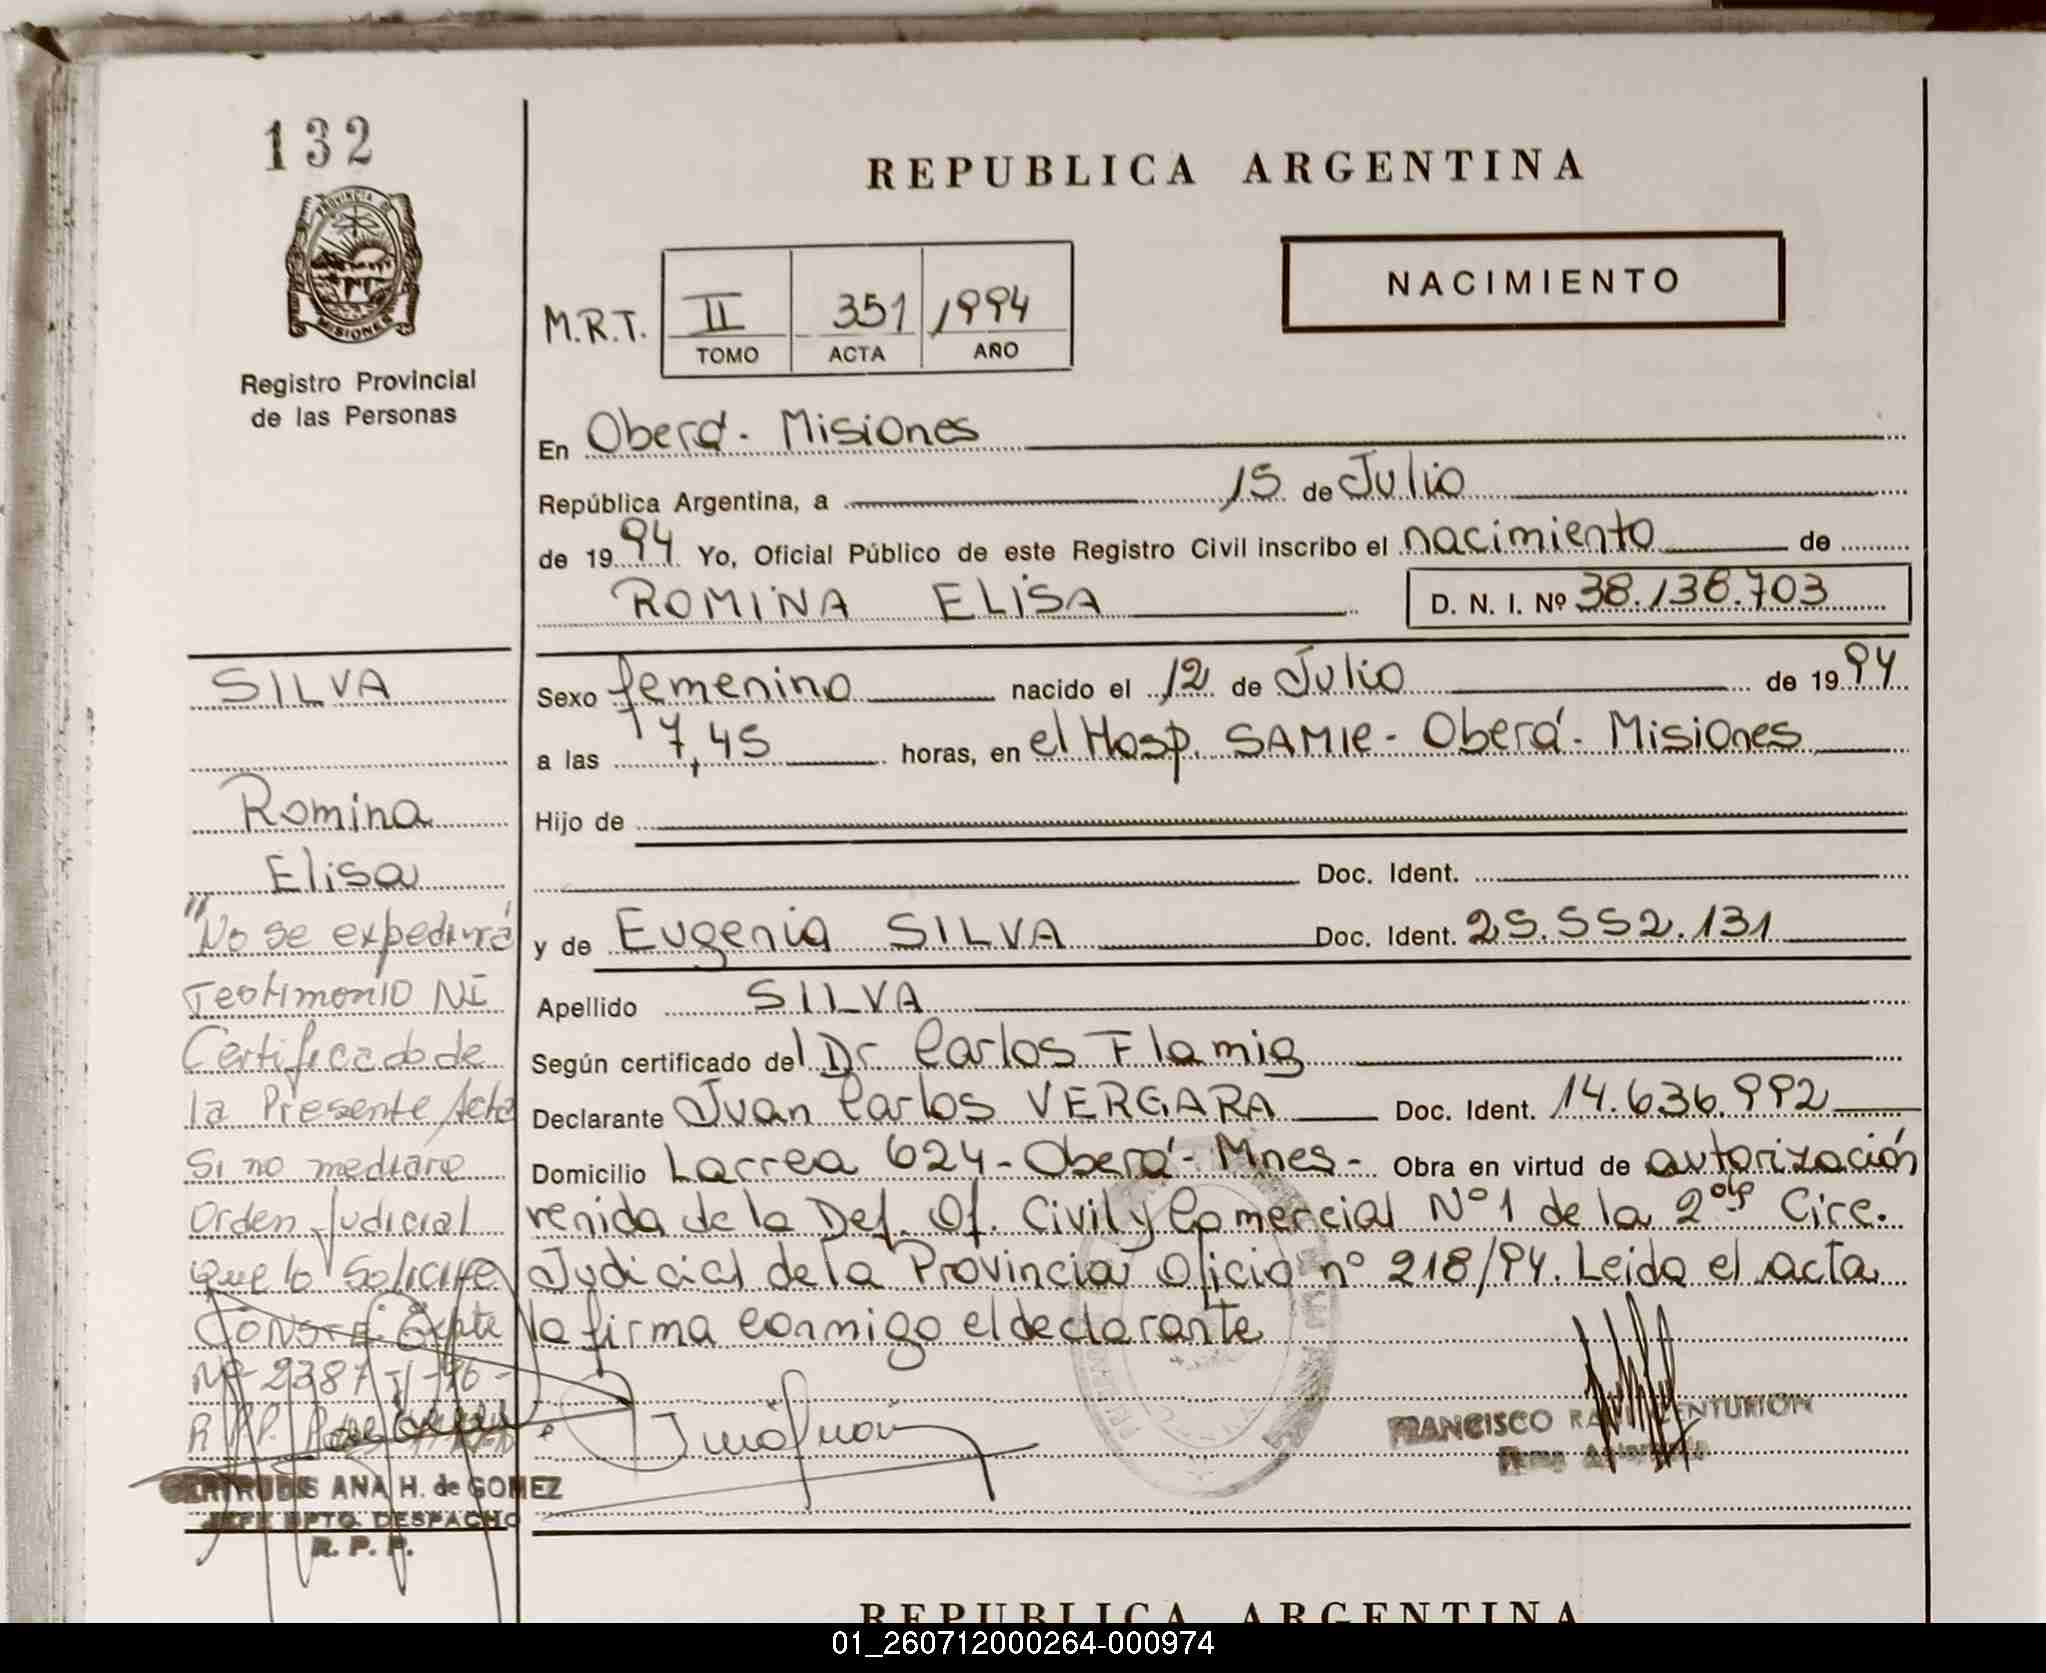 132
PROVINCIA DE
MISIONES
Registro Provincial
de las Personas
REPUBLICA ARGENTINA
NACIMIENTO
M.R.T. II 351 1994
TOMO ACTA AÑO
En Oberá - Misiones
República Argentina, a 15 de Julio
de 1994 Yo, Oficial Público de este Registro Civil inscribo el nacimiento de
ROMINA ELISA D. N. I. Nº 38.138.703
SILVA
Romina
Elisa
"No se expedirá
Testimonio NI
Certificado de
la Presente Acta
Si no mediare
Orden Judicial
que lo Solicite
Const. Expte
Nº 2387
R.P.P.
GERTRUDIS ANA H. de GOMEZ
JEFE DPTO. DESPACHO
R. P. P.
Sexo femenino nacido el 12 de Julio de 1994
a las 17,45 horas, en el Hosp. SAMIC - Oberá - Misiones
Hijo de
Doc. Ident.
y de Eugenia SILVA Doc. Ident. 25.552.131
Apellido SILVA
Según certificado del Dr. Carlos Flamig
Declarante Juan Carlos VERGARA Doc. Ident. 14.636.992
Domicilio Larrea 624 - Oberá - Mnes - Obra en virtud de autorización
venida de la Def. Of. Civil y Comercial Nº 1 de la 2da Circ.
Judicial de la Provincia Oficio nº 218/94. Leida el acta
la firma conmigo el declarante
FRANCISCO CENTURION
REPUBLICA ARGENTINA
01_260712000264-000974